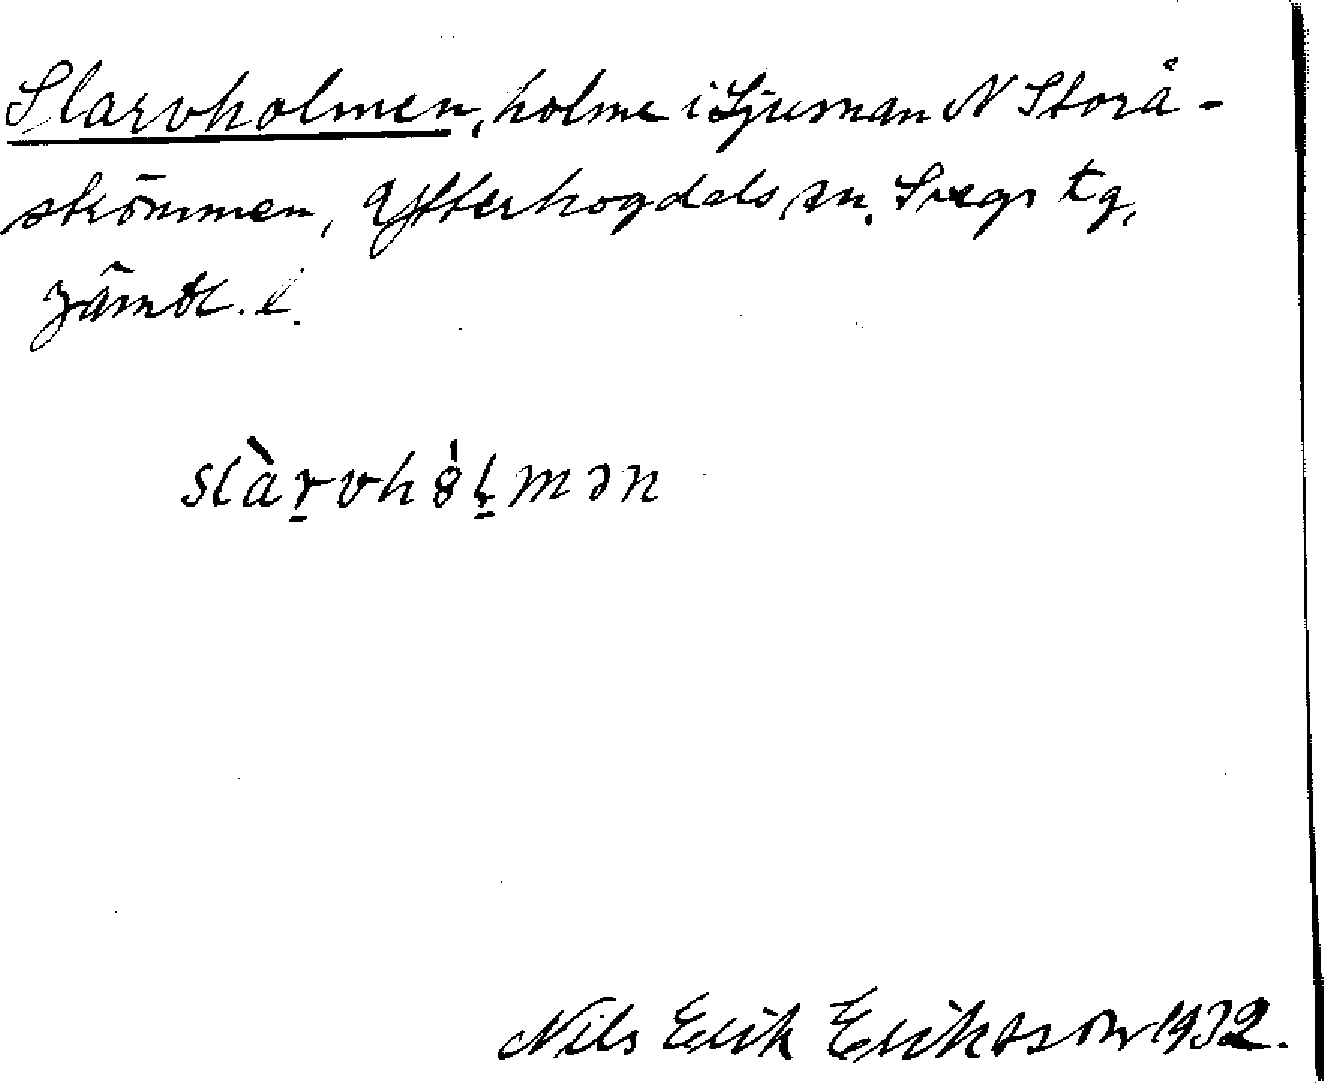 Slarvholmen, holme i Ljusnan N Storå-
strömmen, Ytterhogdals sn. Svegs tg,
Jämtl. l.
slàr̠vhòḷmən
Nils Erik Eriksson 1932.